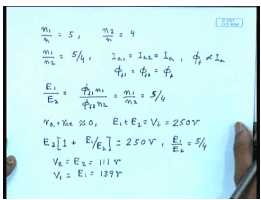 n₁/n = 5, n₂/n = 4
n₁/n₂ = 5/4, Iₐ₁ = Iₐ₂ = Iₐ, ϕ_f ∝ Iₐ
ϕ_f₁ = ϕ_f₂ = ϕ_f
E₁/E₂ = ϕ_f₁n₁/ϕ_f₂n₂ = n₁/n₂ = 5/4
rₐ+r_se ≈ 0, E₁+E₂ = V₂ = 250V
E₂[1 + E₁/E₂] = 250V, E₁/E₂ = 5/4
V₂ = E₂ = 111V
V₁ = E₁ = 139V